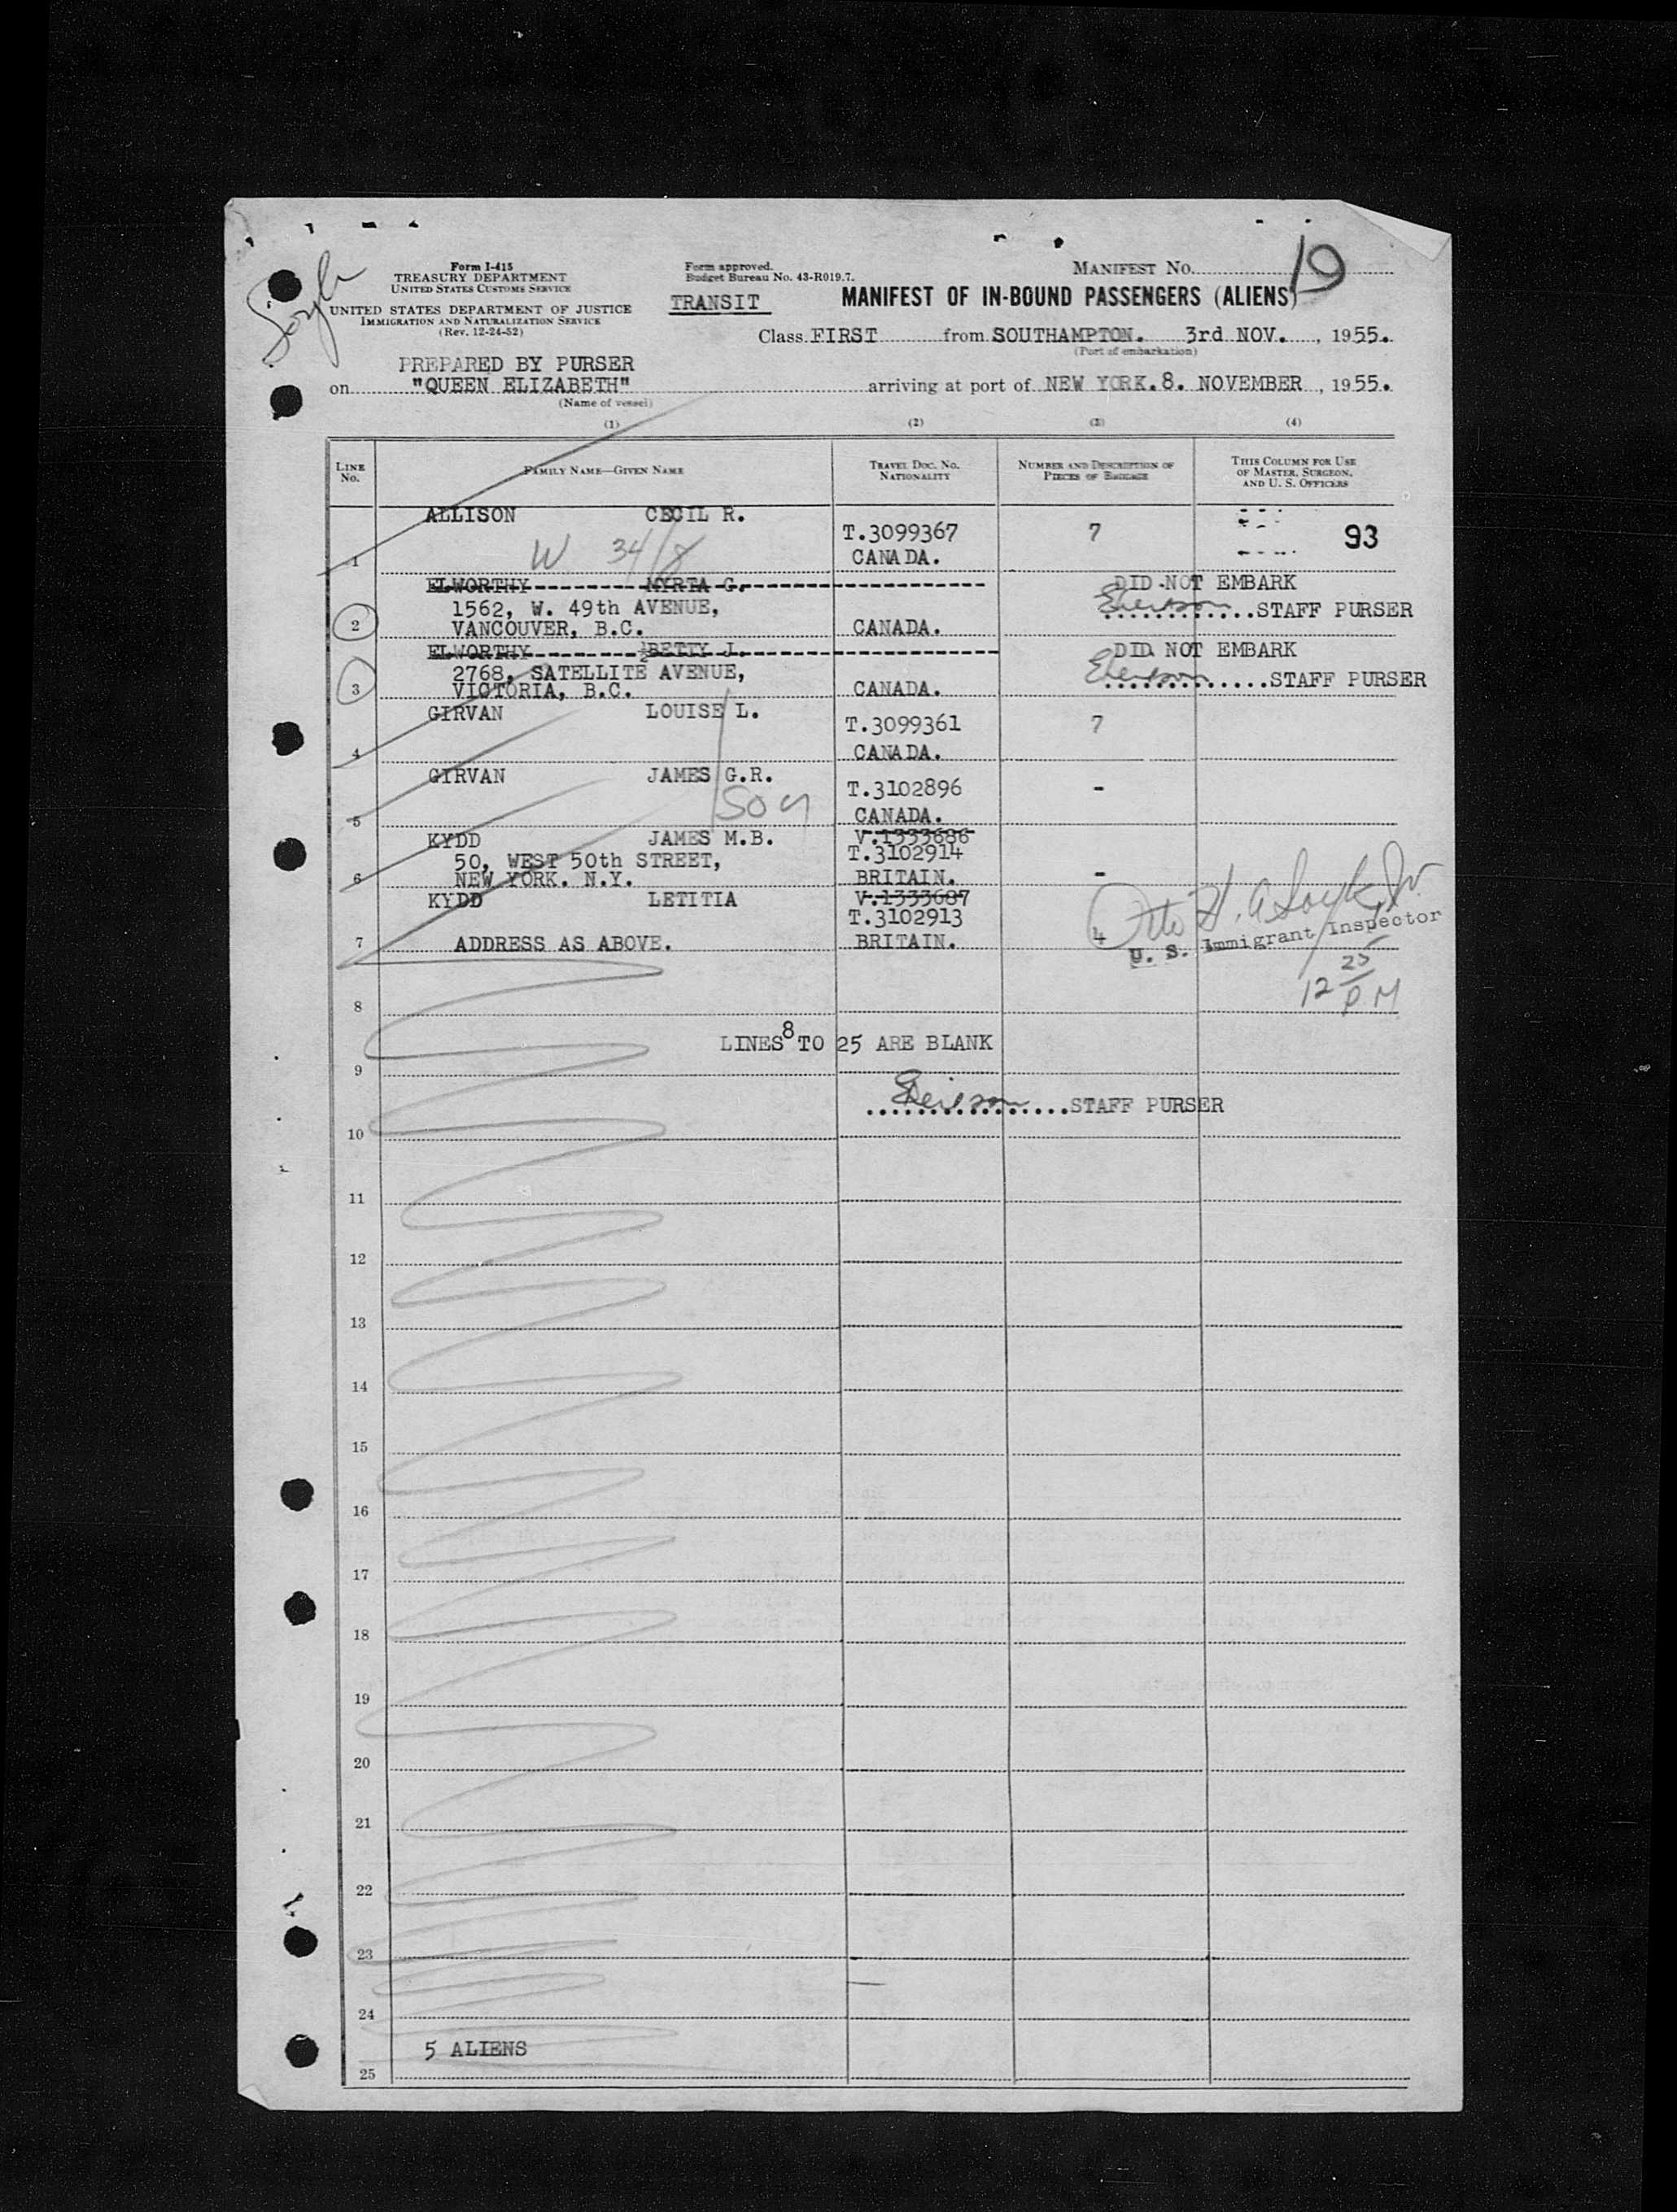 Form I-415
TREASURY DEPARTMENT
UNITED STATES CUSTOMS SERVICE
UNITED STATES DEPARTMENT OF JUSTICE
IMMIGRATION AND NATURALIZATION SERVICE
(Rev. 12-24-52)
Form approved.
Budget Bureau No. 43-R019.7.
TRANSIT
MANIFEST NO. 19
MANIFEST OF IN-BOUND PASSENGERS (ALIENS)
Class FIRST from SOUTHAMPTON. 3rd NOV. , 1955.
(Port of embarkation)
PREPARED BY PURSER
on "QUEEN ELIZABETH" arriving at port of NEW YORK. 8. NOVEMBER , 1955.
(Name of vessel)
(1) (2) (3) (4)
LINE NO.
FAMILY NAME—GIVEN NAME
TRAVEL DOC. NO. NATIONALITY
NUMBER AND DESCRIPTION OF PIECES OF BAGGAGE
THIS COLUMN FOR USE OF MASTER, SURGEON, AND U. S. OFFICERS
ALLISON CECIL R.
T.3099367 7 93
W 34/8
1 CANADA.
ELWORTHY MYRTA G. DID NOT EMBARK
1562, W. 49th AVENUE, STAFF PURSER
2 VANCOUVER, B.C. CANADA.
ELWORTHY ½BETTY J. DID NOT EMBARK
2768, SATELLITE AVENUE, STAFF PURSER
3 VICTORIA, B.C. CANADA.
GIRVAN LOUISE L.
T.3099361 7
4 CANADA.
GIRVAN JAMES G.R.
T.3102896 -
Son
5 CANADA.
KYDD JAMES M.B. V.1333686
50, WEST 50th STREET, T.3102914
6 NEW YORK. N.Y. BRITAIN. -
KYDD LETITIA V.1333687
T.3102913
7 ADDRESS AS ABOVE. BRITAIN. 4
U. S. Immigrant Inspector
12 25 P.M
8
LINES 8 TO 25 ARE BLANK
9
STAFF PURSER
10
11
12
13
14
15
16
17
18
19
20
21
22
23
24
5 ALIENS
25